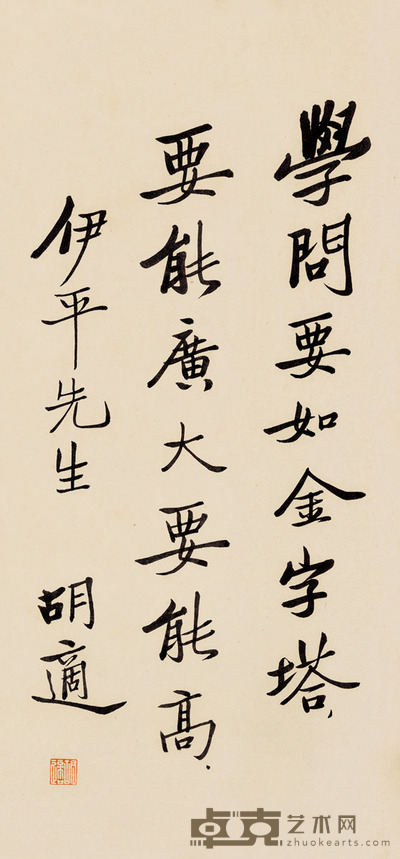 學問要如金字塔.
要能廣大要能高.
伊平先生 胡適
卓克艺术网
zhuokearts.com